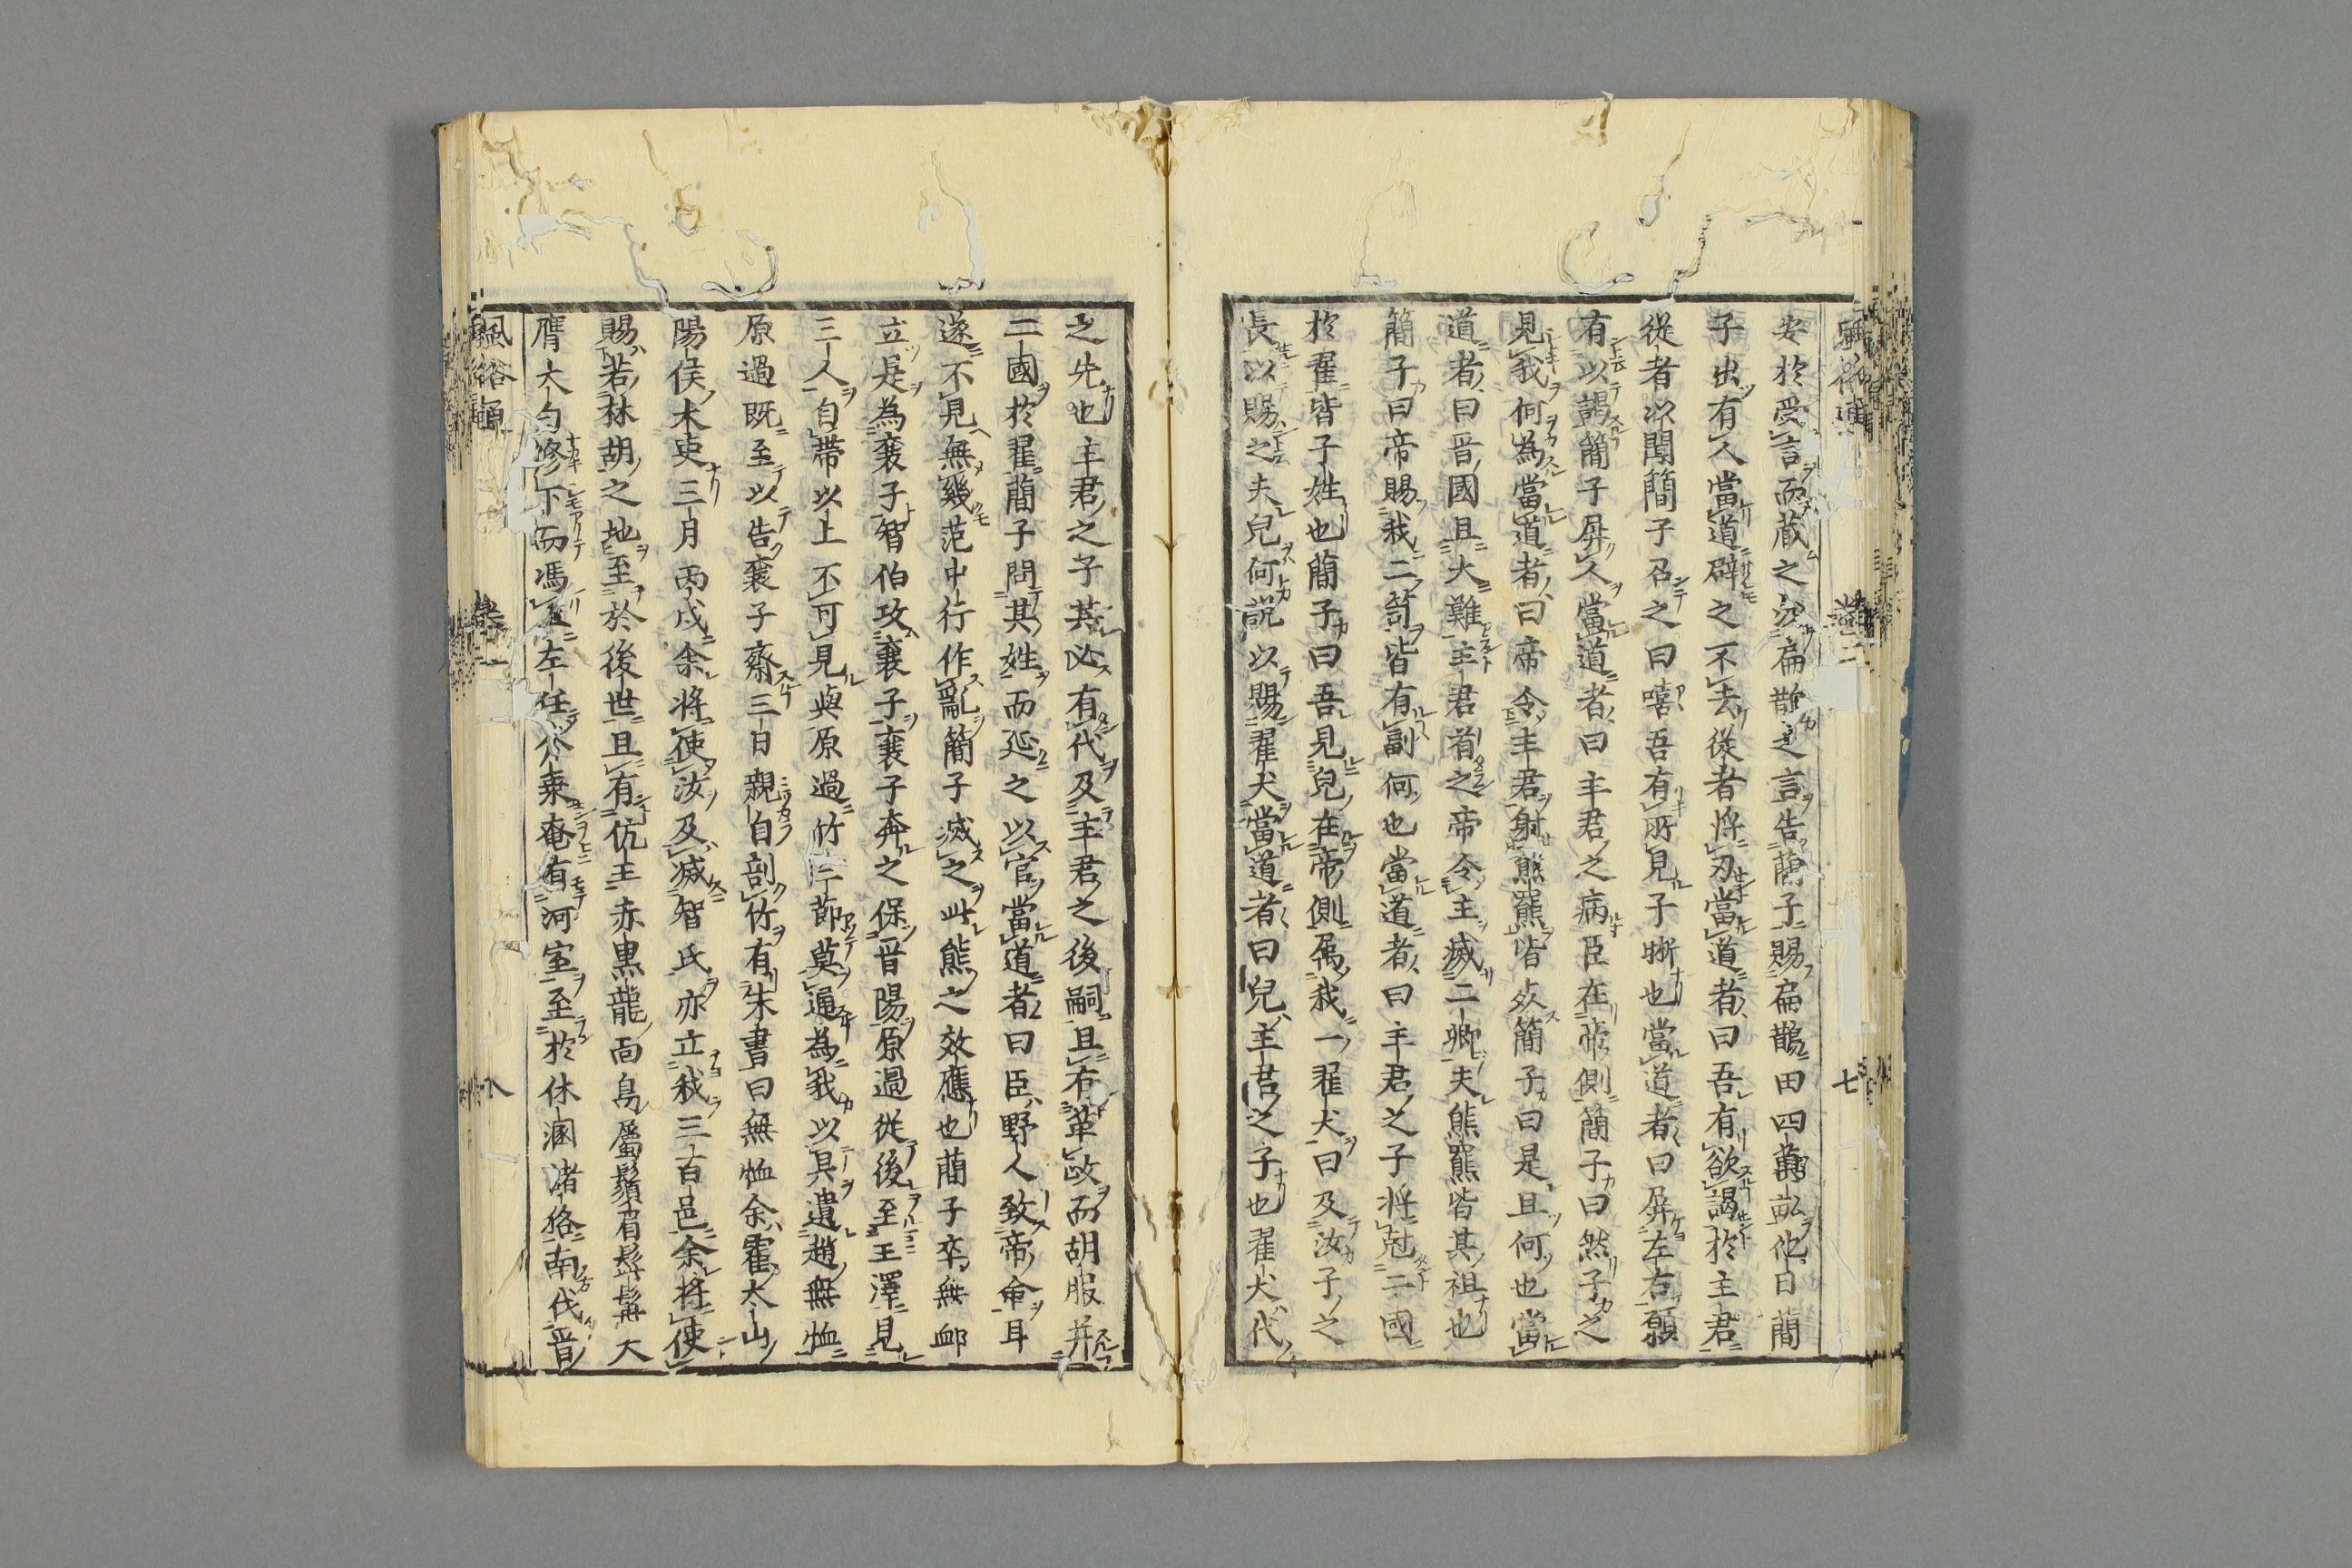 安於受言而蔵之以扁鵲之言告蕳子賜扁鵲田四萬畝他日蕳
子出有人當道辟之不去從者将刃當道者曰吾有欲謁於主君
從者以聞簡子召之曰嘻吾有所見子晣也當道者曰屏左右願
有以謁簡子屏人當道者曰主君之病臣在帝側簡子曰然子之
見我何為當道者曰帝令主君射熊羆皆死簡子曰是且何也當
道者曰晋國且大難主君首之帝令主滅二卿夫熊羆皆其祖也
簡子曰帝賜我二笥皆有副何也當道者曰主君之子将尅二國
於翟皆子姓也蕳子曰吾見兒在帝側属我一翟犬曰及汝子之
長以賜之夫兒何説以賜翟犬當道者曰兒主君之子也翟犬代
之先也主君之子其必有代及主君之後嗣且有革政而胡服并
二國於翟蕳子問其姓而延之以官當道者曰臣野人致帝命耳
遂不見無幾范中行作亂簡子滅之此熊之效應也蕳子卒無卹
立是為襄子智伯攻襄子襄子奔之保晋陽原過從後至王澤見
三人自帶以上不可見與原過竹二節莫通為我以是遺趙無恤
原過既至以告襄子齋三日親自剖竹有朱書曰無恤余霍大山
陽侯大吏三月丙戌余将使汝及滅智氏亦立我三百邑余将使
賜若林胡之地至於後世且有伉王赤黒龍面鳥屬鬚眉髭髯大
膺大匈修下而馮左任介乗奄有河室至於休溷諸狢南伐晋